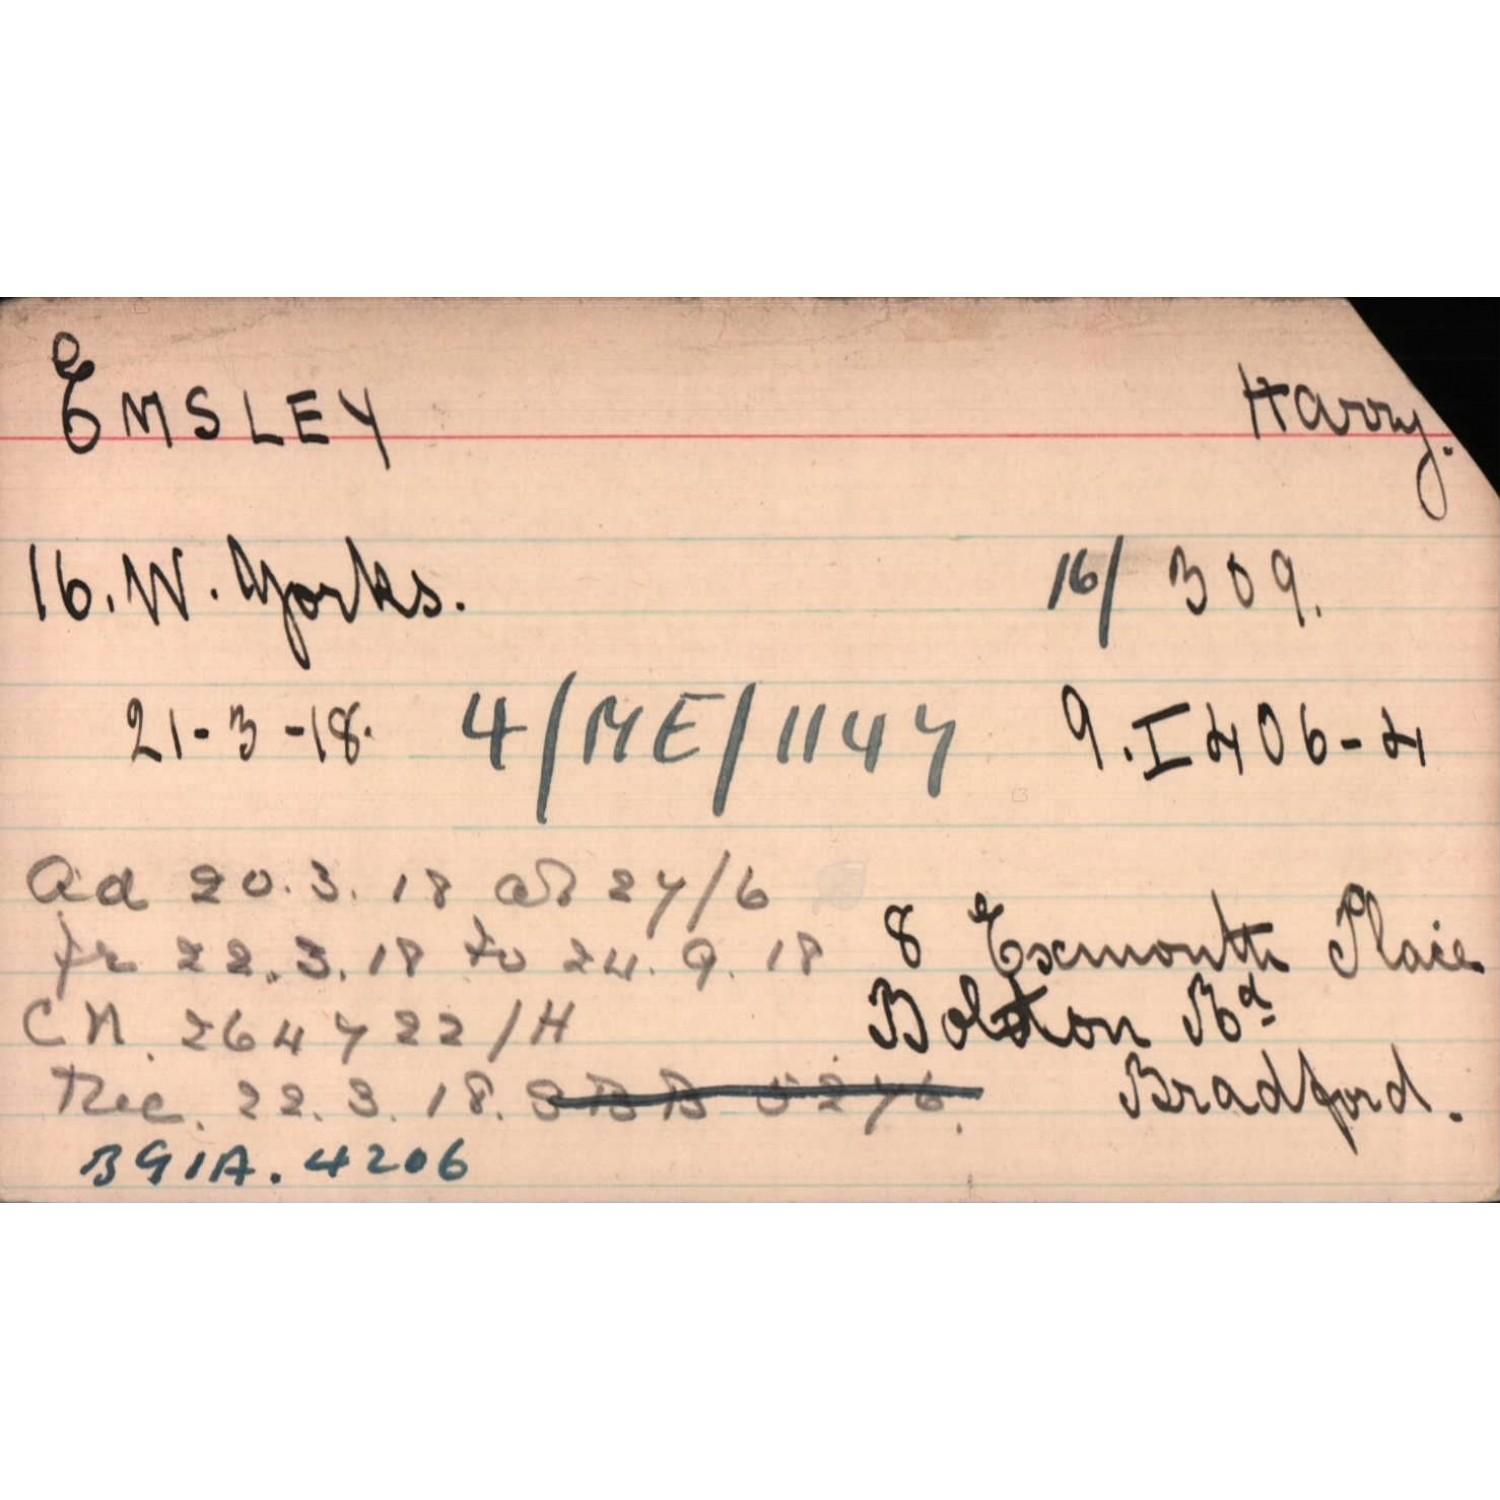 EMSLEY Harry.
16. W. Yorks. 16/ 309.
21-3-18. 4/ME/1147 9.I406-4
Ad 20.3.18 at 27/6
fr 22.3.18 to 24.9.18 8 Exmouth Place
CN. 264722/H Bolton Rd
Rec. 22.3.18. SBB 5276. Bradford.
391A. 4206